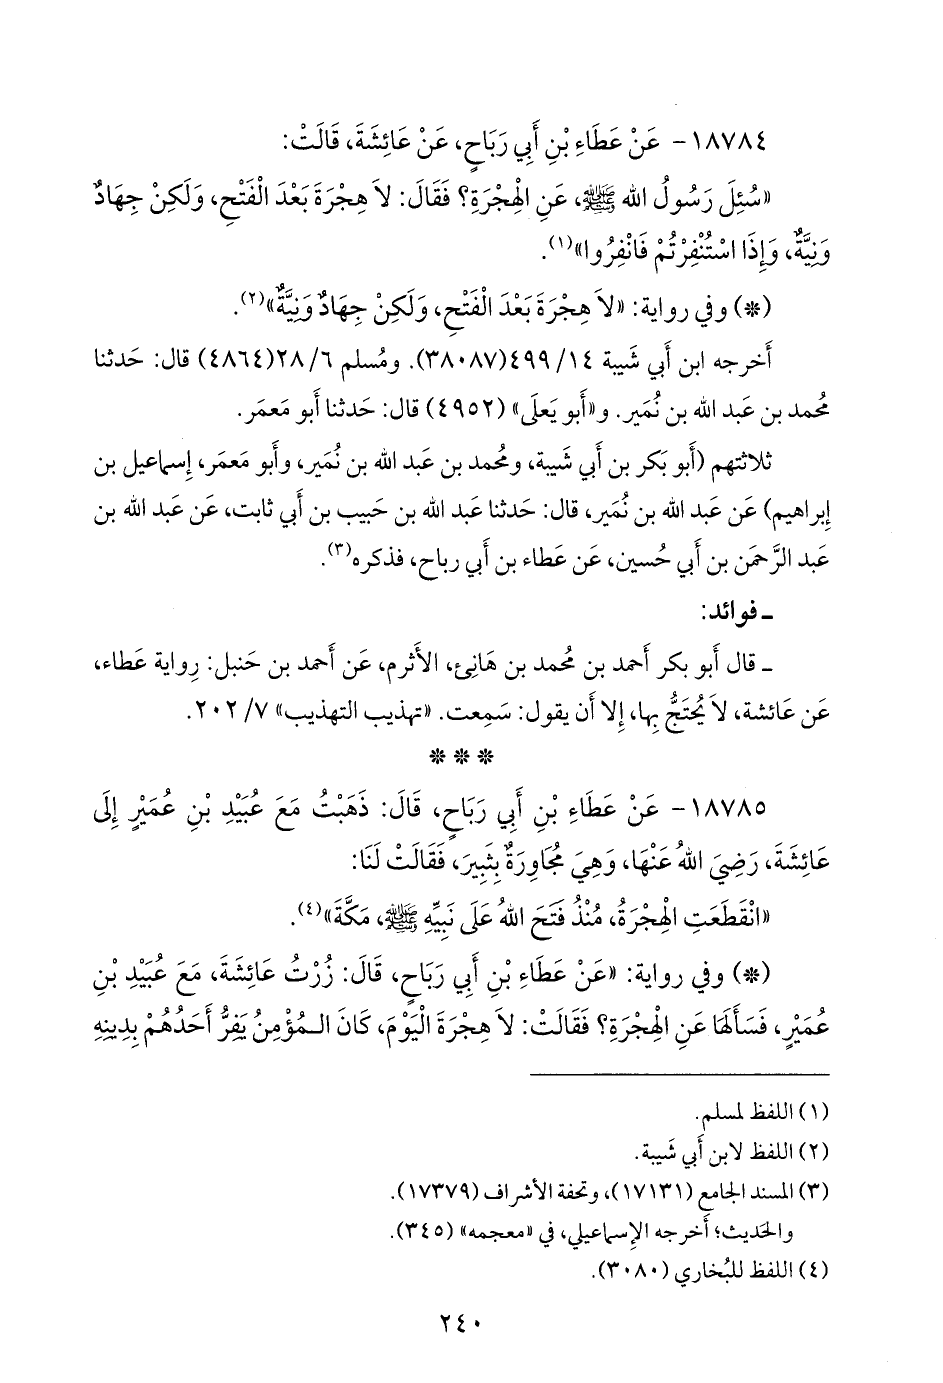 ١٨٧٨٤- عَنْ عَطَاءِ بْنِ أَبِي رَبَاحٍ، عَنْ عَائِشَةَ، قَالَتْ:
«سُئِلَ رَسُولُ الله ﷺ، عَنِ الْهِجْرَةِ؟ فَقَالَ: لاَ هِجْرَةَ بَعْدَ الْفَتْحِ، وَلَكِنْ جِهَادٌ
وَنِيَّةٌ، وَإِذَا اسْتُنْفِرْتُمْ فَانْفِرُوا»(١).
(*) وفي رواية: «لاَ هِجْرَةَ بَعْدَ الْفَتْحِ، وَلَكِنْ جِهَادٌ وَنِيَّةٌ»(٢).
أَخرجه ابن أَبي شَيبة ١٤/ ٤٩٩(٣٨٠٨٧). ومُسلم ٦/ ٢٨(٤٨٦٤) قال: حَدثنا
مُحمد بن عَبد الله بن نُمَير. و«أَبو يَعلَى» (٤٩٥٢) قال: حَدثنا أَبو مَعمَر.
ثلاثتهم (أَبو بَكر بن أَبي شَيبة، ومُحمد بن عَبد الله بن نُمَير، وأَبو مَعمَر، إِسماعيل بن
إِبراهيم) عَن عَبد الله بن نُمَير، قال: حَدثنا عَبد الله بن حَبيب بن أَبي ثابت، عَن عَبد الله بن
عَبد الرَّحمَن بن أَبي حُسين، عَن عَطاء بن أَبي رباح، فذكره(٣).
ـ فوائد:
ـ قال أَبو بكر أَحمد بن مُحمد بن هَانِئ، الأَثرم، عَن أَحمد بن حَنبل: رِواية عَطاء،
عَن عَائشة، لاَ يُحتَجُّ بِها، إِلا أَن يقول: سَمِعت. «تهذيب التهذيب» ٧/ ٢٠٢.
* * *
١٨٧٨٥- عَنْ عَطَاءِ بْنِ أَبِي رَبَاحٍ، قَالَ: ذَهَبْتُ مَعَ عُبَيْدِ بْنِ عُمَيْرٍ إِلَى
عَائِشَةَ، رَضِيَ اللهُ عَنْهَا، وَهِيَ مُجَاوِرَةٌ بِثَبِيرَ، فَقَالَتْ لَنَا:
«انْقَطَعَتِ الْهِجْرَةُ، مُنْذُ فَتَحَ اللهُ عَلَى نَبِيِّهِ ﷺ، مَكَّةَ»(٤).
(*) وفي رواية: «عَنْ عَطَاءِ بْنِ أَبِي رَبَاحٍ، قَالَ: زُرْتُ عَائِشَةَ، مَعَ عُبَيْدِ بْنِ
عُمَيْرٍ، فَسَأَلَهَا عَنِ الْهِجْرَةِ؟ فَقَالَتْ: لاَ هِجْرَةَ الْيَوْمَ، كَانَ الـمُؤْمِنُ يَفِرُّ أَحَدُهُمْ بِدِينِهِ
(١) اللفظ لمسلم.
(٢) اللفظ لابن أَبي شَيبة.
(٣) المسند الجامع (١٧١٣١)، وتحفة الأشراف (١٧٣٧٩).
والحَديث؛ أَخرجه الإِسماعيلي، في «معجمه» (٣٤٥).
(٤) اللفظ للبُخاري (٣٠٨٠).
٢٤٠